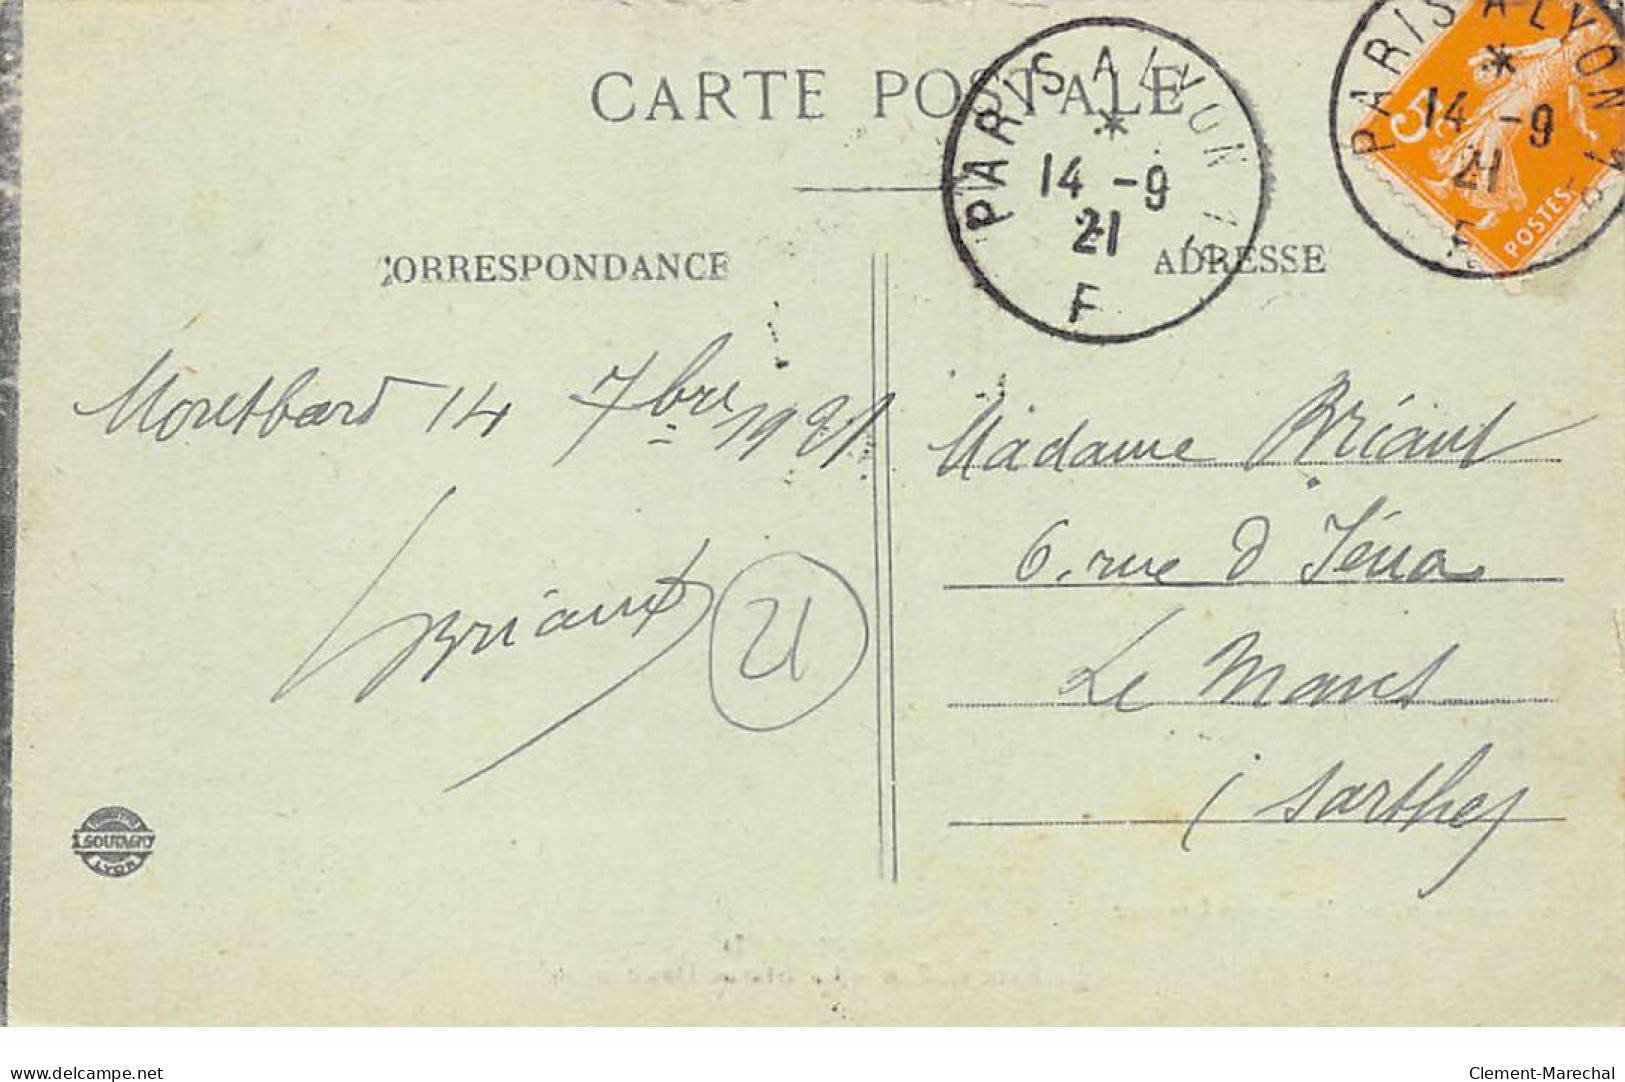 CARTE POSTALE
PARIS A LYON 1°
*
14 -9
21
F
PARIS A LYON 1°
*
14 -9
21
F
5
POSTES
CORRESPONDANCE
ADRESSE
Montbard 14 7bre 1921
Briant
21
Madame Briant
6, rue d'Iéna
Le Mans
(Sarthe)
SOUTAGNY
LYON
delcampe.net
Clement-Marechal